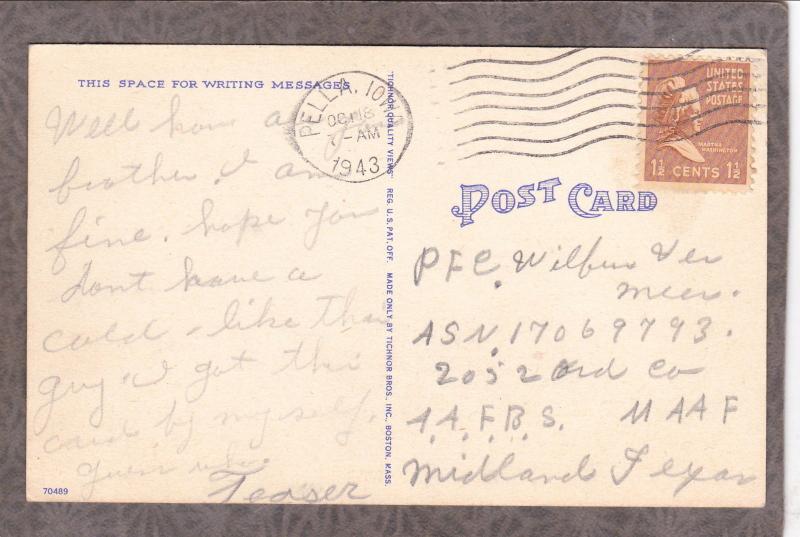 THIS SPACE FOR WRITING MESSAGES
Well how are you
brother. I am
fine. hope you
dont have a
cold - like this
guy. I got this
card by myself.
guess who.
Teaser
70489
"TICHNOR QUALITY VIEWS" REG. U.S. PAT. OFF. MADE ONLY BY TICHNOR BROS., INC., BOSTON, MASS.
PELLA, IOWA
OCT 18
7 - AM
1943
UNITED
STATES
POSTAGE
MARTHA
WASHINGTON
1½ CENTS 1½
POST CARD
PFC. Wilbur Ver
Meer.
ASN. 17069793.
2052 Ord Co
A.A.F.B.S. MAAF
Midland Texas